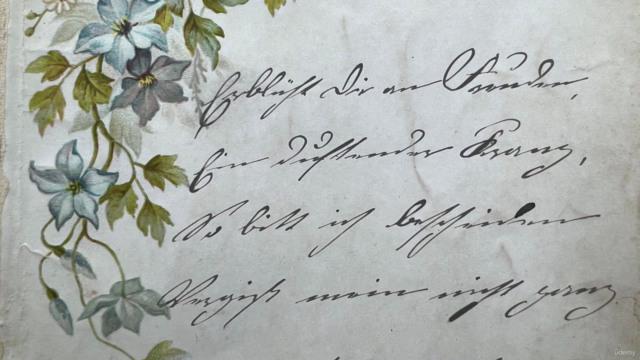 Erblüht Dir an Freuden,
Ein duftender Kranz,
So bitt ich bescheiden
Vergiß mein nicht ganz.
ûdemy